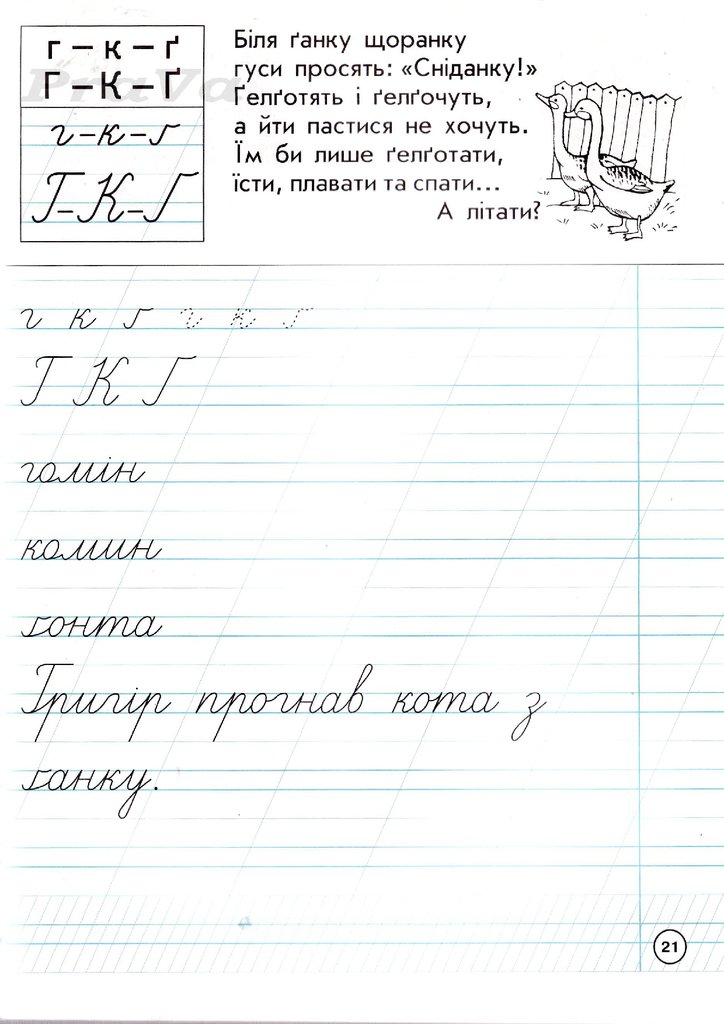 г – к – ґ
Г – К – Ґ
г – к – ґ
Г – К – Ґ
Біля ґанку щоранку
гуси просять: «Сніданку!»
Ґелґотять і ґелґочуть,
а йти пастися не хочуть.
Їм би лише ґелґотати,
їсти, плавати та спати...
А літати?
г к ґ г к ґ
Г К Ґ
гомін
комин
ґонта
Григір прогнав кота з
ґанку.
21